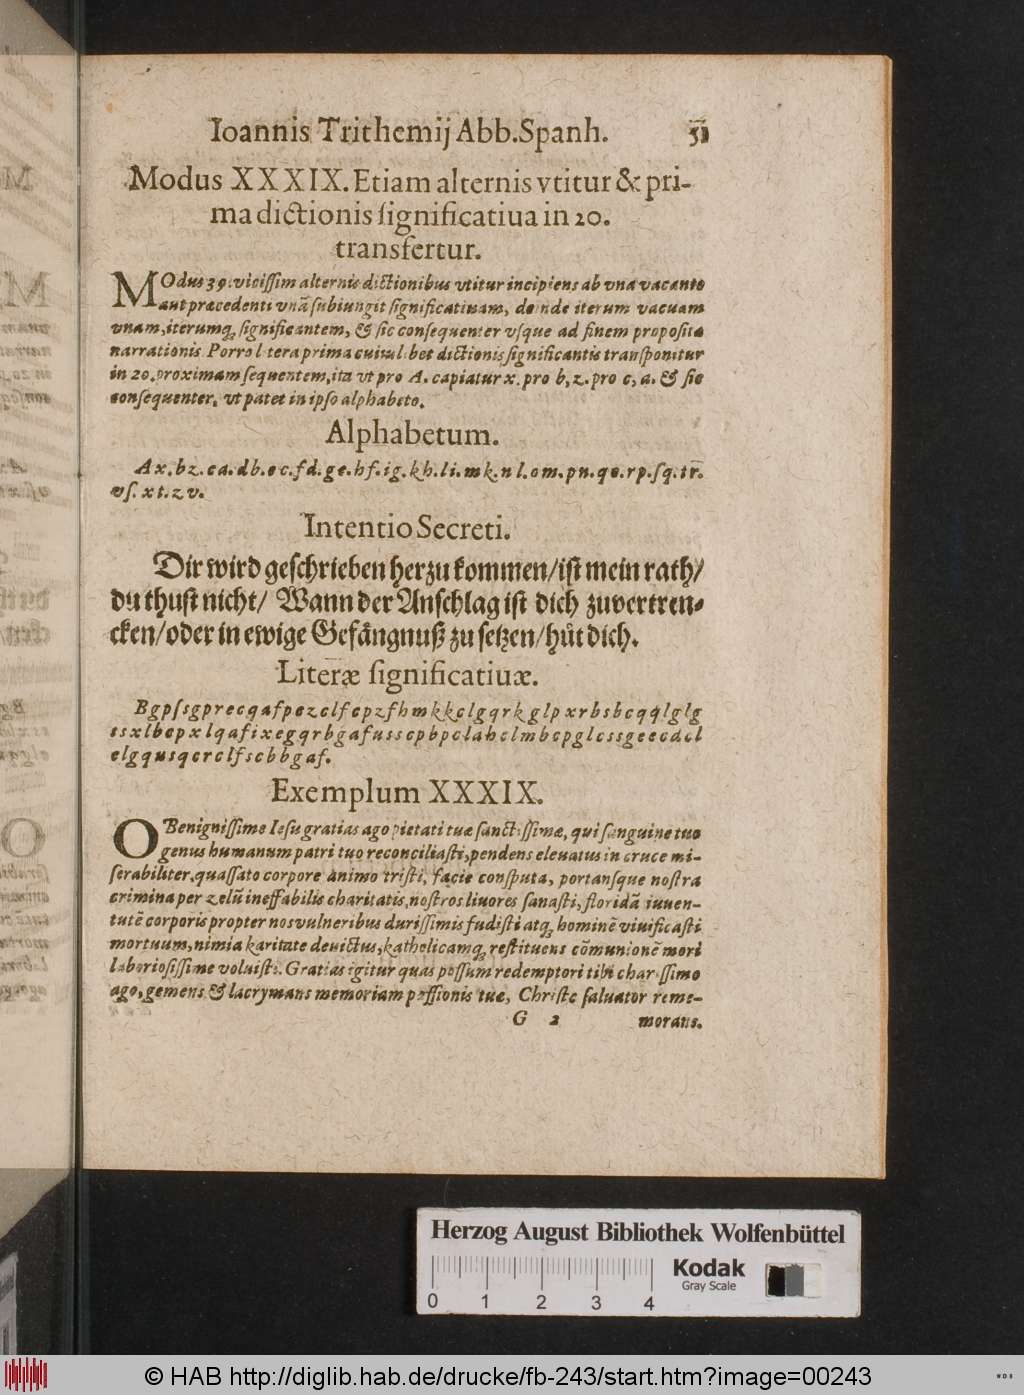 Ioannis Trithemij Abb. Spanh. 51
Modus XXXIX. Etiam alternis vtitur & pri-
ma dictionis ſignificatiua in 20.
transfertur.
MOdus 39. viciſſim alternis dictionibus vtitur incipiens ab vna vacante
aut præcedenti vnã ſubiungit ſignificatiuam, deinde iterum vacuam
vnam, iterumq; ſignificantem, & ſic conſequenter vſque ad finem propoſitæ
narrationis. Porro litera prima cuiuslibet dictionis ſignificantis tranſponitur
in 20. proximam ſequentem, ita vt pro A. capiatur x. pro b, z. pro c, a. & ſic
conſequenter, vt patet in ipſo alphabeto.
Alphabetum.
A x. b z. c a. d b. e c. f d. g e. h f. i g. k h. l i. m k. n l. o m. p n. q o. r p. ſ q. t r.
v ſ. x t. z v.
Intentio Secreti.
Dir wird geſchrieben herzu kommen/ iſt mein rath/
du thuſt nicht/ Wann der Anſchlag iſt dich zuvertren-
cken/ oder in ewige Gefängnuß zu ſetzen/ hüt dich.
Literæ ſignificatiuæ.
B g p ſ s g p r e c q a f p c z c l f c p z f h m k k c l g q r k g l p x r b s b c q q l g l g
s s x l b c p x l q a f i x e g q r b g a f u s s c p b p c l a h c l m b c p g l c s s g e e c d c l
e l g q u s q c r c l f s c b b g a f.
Exemplum XXXIX.
O Benigniſſime Ieſu gratias ago pietati tuæ ſanctiſſimæ, qui ſanguine tuo
genus humanum patri tuo reconciliaſti, pendens eleuatus in cruce mi-
ſerabiliter, quaſſato corpore animo triſti, facie conſputa, portanſque noſtra
crimina per zelũ ineffabilis charitatis, noſtros liuores ſanaſti, floridã iuuen-
tutẽ corporis propter nos vulneribus duriſſimis fudiſti atq; hominẽ viuificaſti
mortuum, nimia karitate deuictus, katholicamq; reſtituens cõmunionẽ mori
laborioſiſſime voluiſti. Gratias igitur quas poſſum redemptori tibi chariſſimo
ago, gemens & lacrymans memoriam paſſionis tuæ, Chriſte ſaluator reme-
G 2 morans.
Herzog August Bibliothek Wolfenbüttel
Kodak
Gray Scale
0 1 2 3 4
© HAB http://diglib.hab.de/drucke/fb-243/start.htm?image=00243